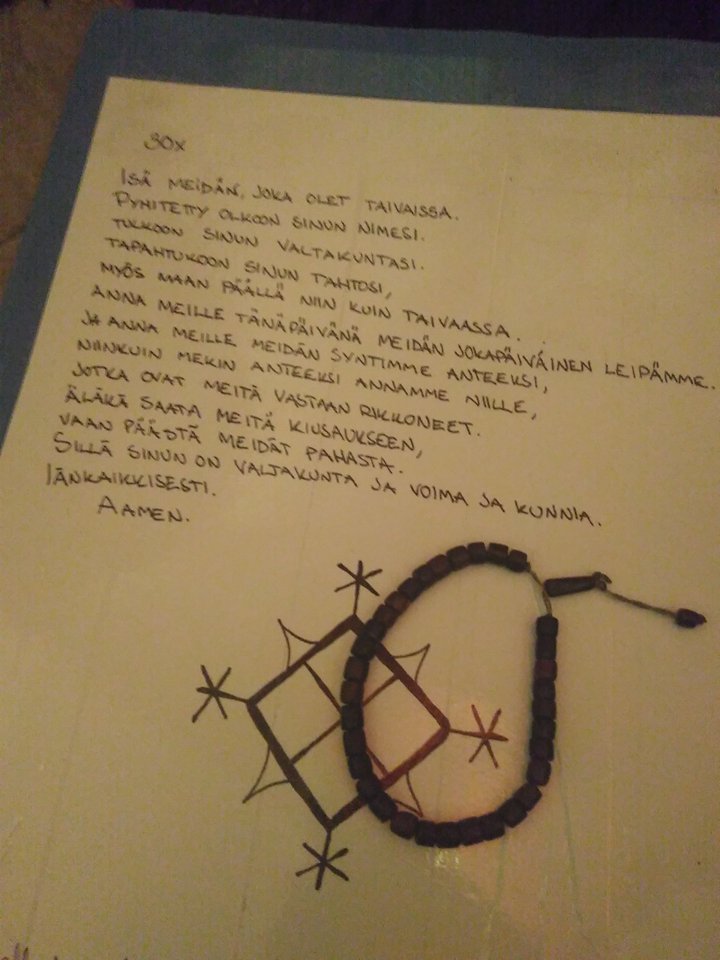 30x
ISÄ MEIDÄN, JOKA OLET TAIVAISSA.
PYHITETTY OLKOON SINUN NIMESI.
TULKOON SINUN VALTAKUNTASI.
TAPAHTUKOON SINUN TAHTOSI,
MYÖS MAAN PÄÄLLÄ NIIN KUIN TAIVAASSA.
ANNA MEILLE TÄNÄPÄIVÄNÄ MEIDÄN JOKAPÄIVÄINEN LEIPÄMME.
JA ANNA MEILLE MEIDÄN SYNTIMME ANTEEKSI,
NIINKUIN MEKIN ANTEEKSI ANNAMME NIILLE,
JOTKA OVAT MEITÄ VASTAAN RIKKONEET.
ÄLÄKÄ SAATA MEITÄ KIUSAUKSEEN,
VAAN PÄÄSTÄ MEIDÄT PAHASTA.
SILLÄ SINUN ON VALTAKUNTA JA VOIMA JA KUNNIA.
IÄNKAIKKISESTI.
AAMEN.